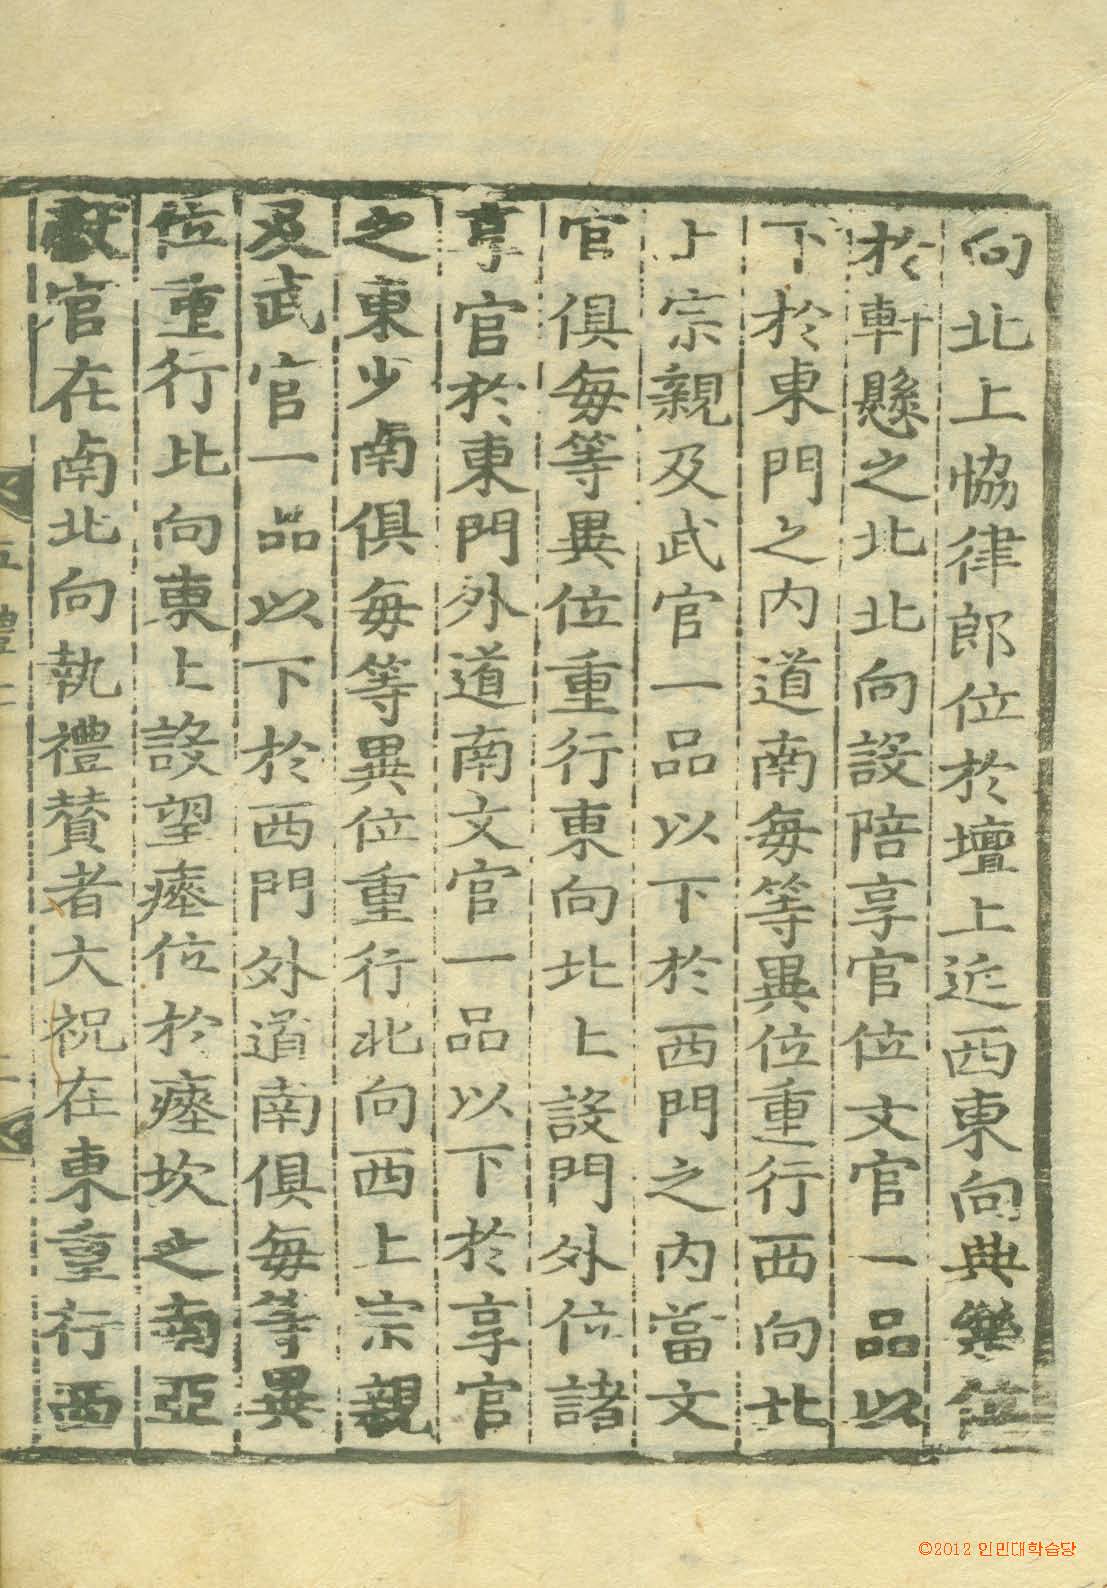 向北上協律郎位於壇上近西東向典樂位
於軒懸之北北向設陪享官位文官一品以
下於東門之內道南每等異位重行西向北
上宗親及武官一品以下於西門之內當文
官俱每等異位重行東向北上設門外位諸
享官於東門外道南文官一品以下於享官
之東少南俱每等異位重行北向西上宗親
及武官一品以下於西門外道南俱每等異
位重行北向東上設望瘞位於瘞坎之南亞
獻官在南北向執禮贊者大祝在東重行西
©2012 인민대학습당